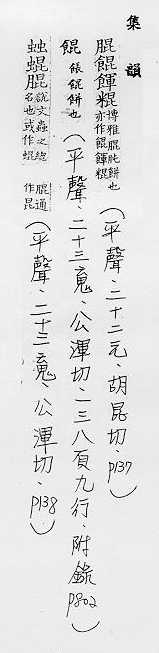 集韻
䐊餛餫䊐博雅䐊肫餅也亦作餛餫䊐（平聲、二十二元、胡昆切、p137）
餛餦餛餅也（平聲、二十三䰟、公渾切、一三八頁九行、附錄p802）
䖵蜫䐊說文蟲之總名也或作蜫䐊通作昆（平聲、二十三䰟、公渾切、p138）